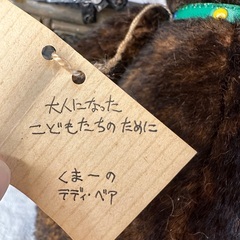 大人になった
こどもたちのために
くまーの
テディ・ベア